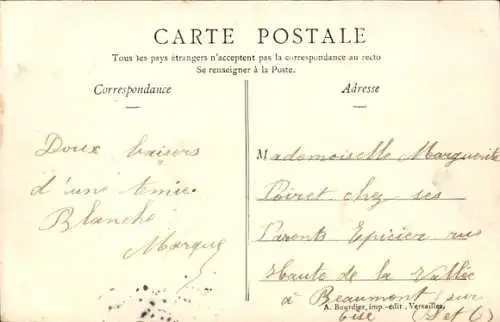 CARTE POSTALE
Tous les pays étrangers n'acceptent pas la correspondance au recto
Se renseigner à la Poste.
Correspondance
Adresse
Doux baisers
d'une Amie.
Blanche
Marque
Mademoiselle Marguerite
Poiret chez ses
Parents Epicier rue
Haute de la Vallée
à Beaumont sur
Oise (S et O)
A. Bourdier, imp.-édit., Versailles.